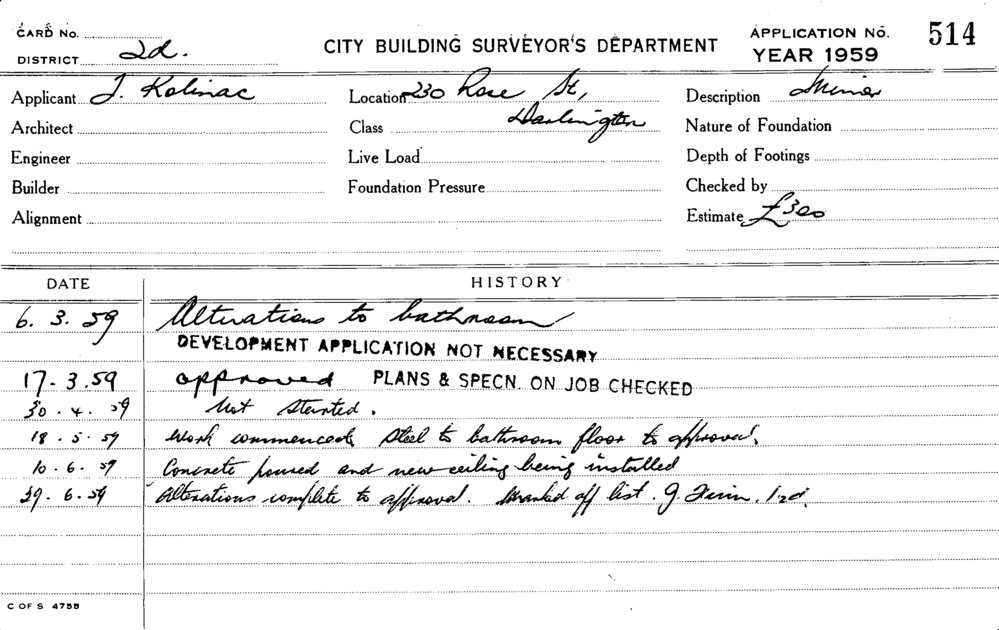 CARD No.
DISTRICT 2d.
CITY BUILDING SURVEYOR'S DEPARTMENT
APPLICATION No. 514
YEAR 1959
Applicant J. Kolinac Location 230 Rose St, Description Minor
Architect Class Darlington Nature of Foundation
Engineer Live Load Depth of Footings
Builder Foundation Pressure Checked by
Alignment Estimate £300
DATE HISTORY
6. 3. 59 Alterations to bathroom
DEVELOPMENT APPLICATION NOT NECESSARY
17. 3. 59 approved PLANS & SPECN. ON JOB CHECKED
30. 4. 59 Not started.
18. 5. 59 Work commenced, steel to bathroom floor to approval.
10. 6. 59 Concrete poured and new ceiling being installed
29. 6. 59 Alterations complete to approval. Marked off list. J.
C OF S 4755